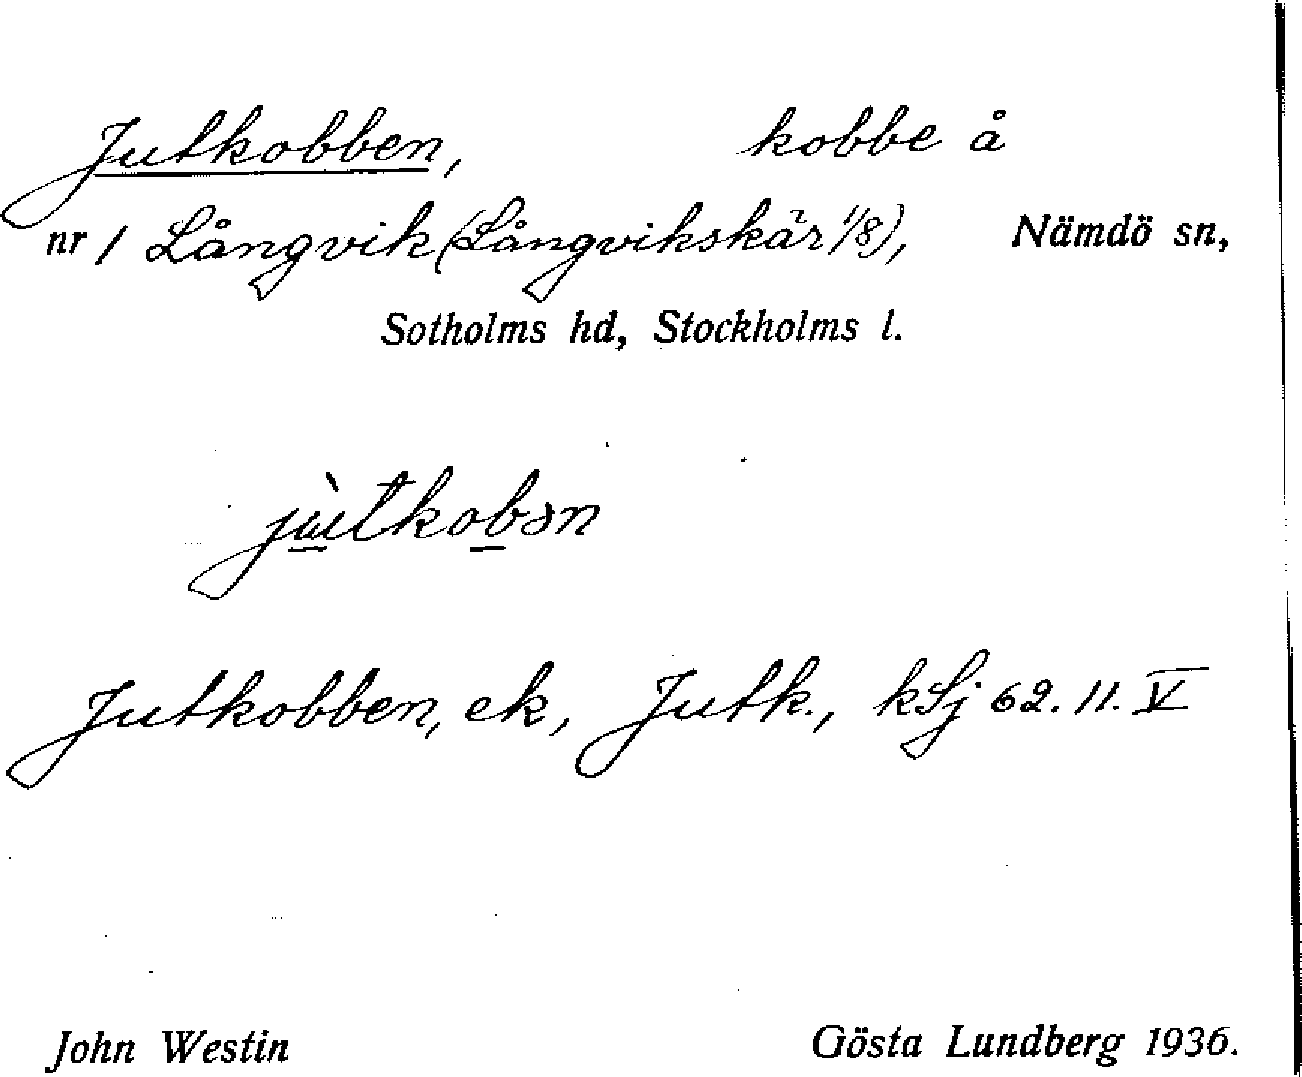 Jutkobben, kobbe å
nr 1 Långvik (Långvikskär 1/8), Nämdö sn,
Sotholms hd, Stockholms l.
jùtkobən
Jutkobben, ek, Jutk., kSj 62. 11. V
John Westin Gösta Lundberg 1936.